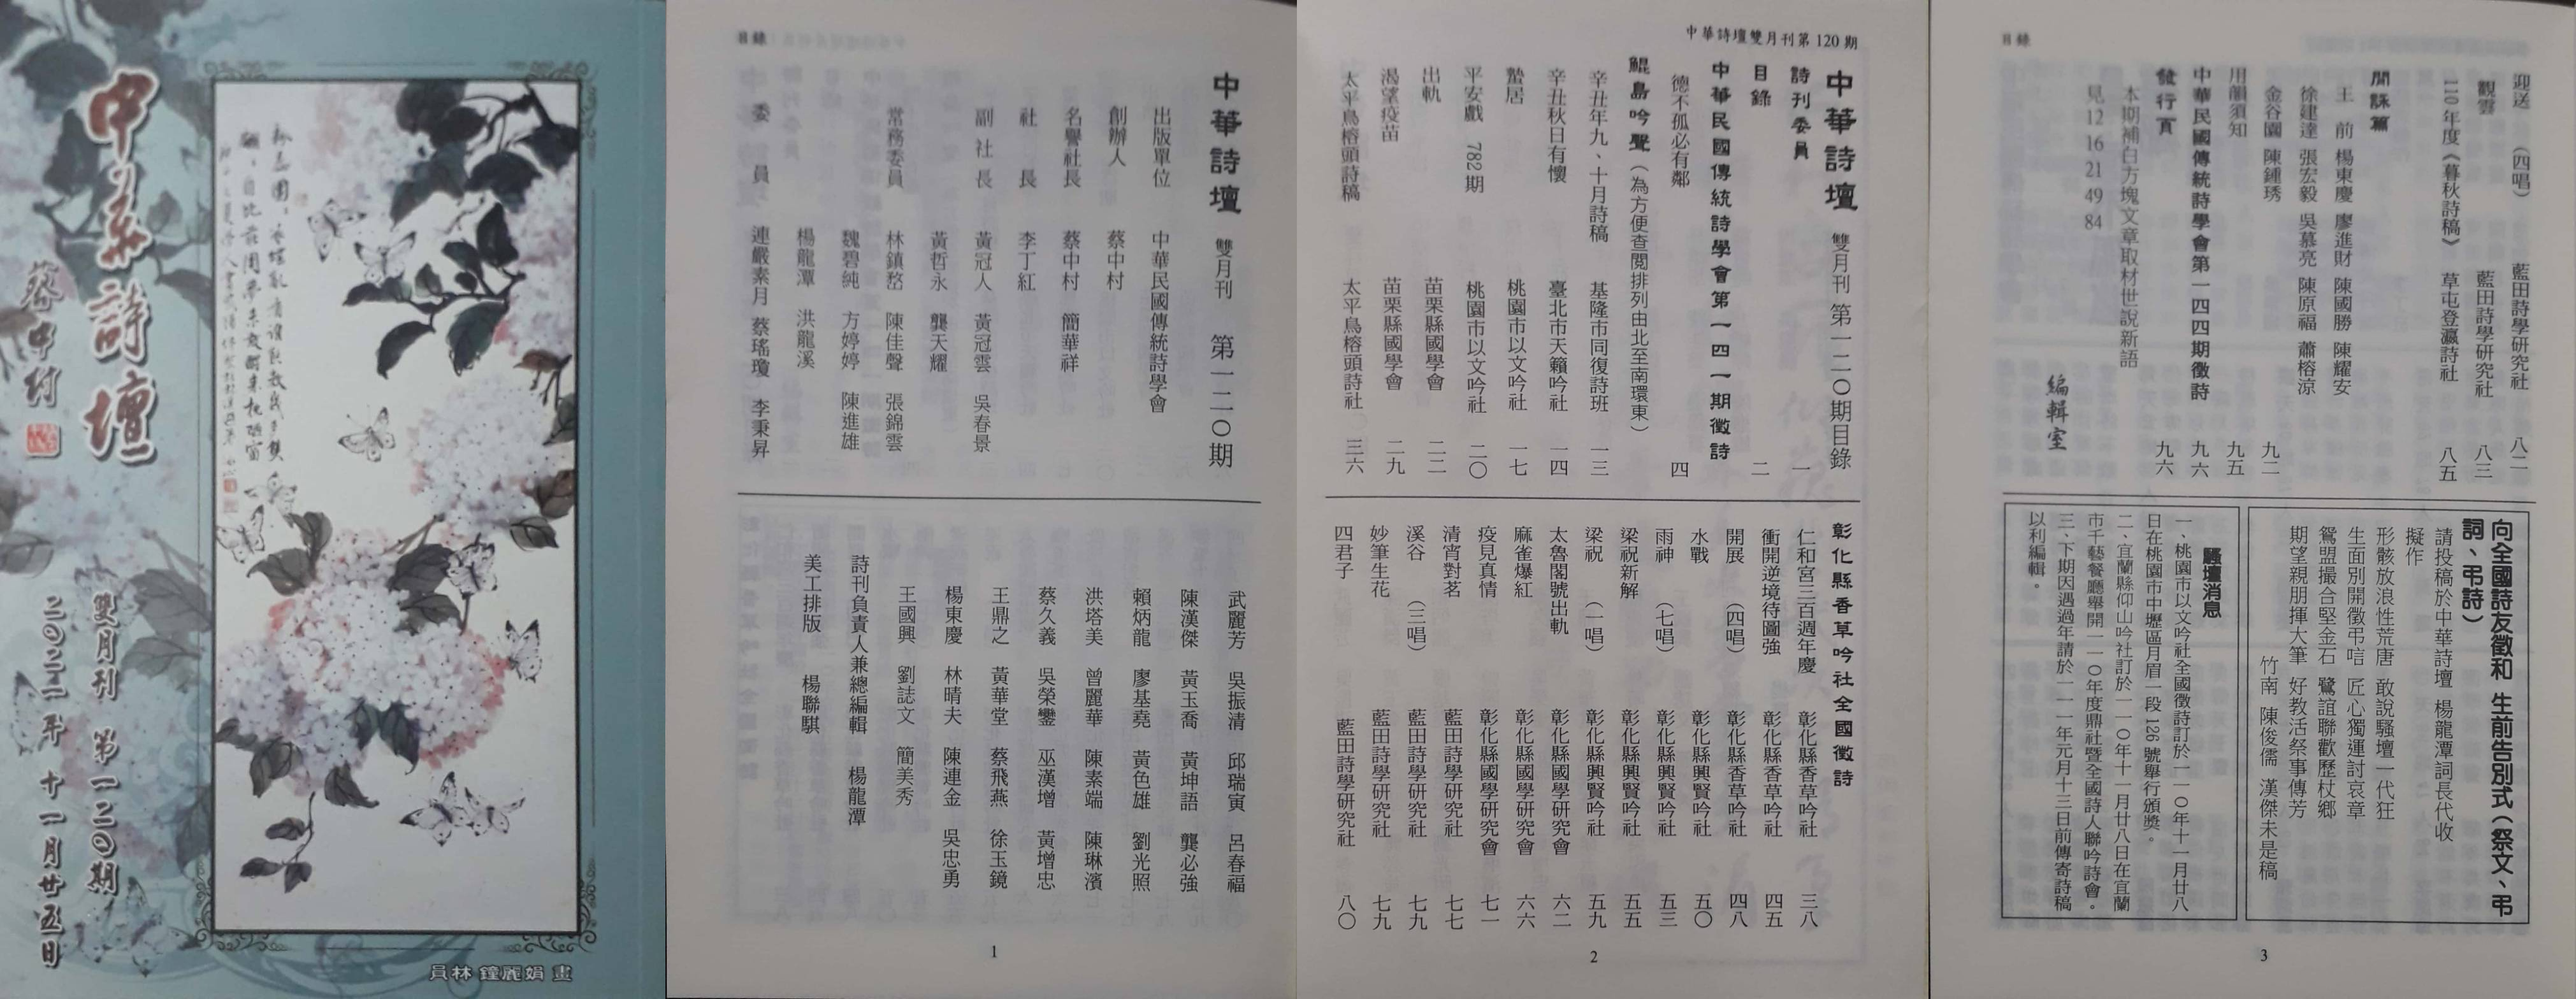 中華詩壇
蔡中村
雙月刊 第一二〇期
二〇二一年十一月廿五日
員林 鐘麗娟 畫
目錄
中華詩壇 雙月刊 第一二〇期
出版單位 中華民國傳統詩學會
創辦人 蔡中村
名譽社長 蔡中村 簡華祥
社長 李丁紅
副社長 黃冠人 黃冠雲 吳春景
黃哲永 龔天耀
常務委員 林鎮嶅 陳佳聲 張錦雲
魏碧純 方婷婷 陳進雄
楊龍潭 洪龍溪
委員 連嚴素月 蔡瑤瓊 李秉昇
武麗芳 吳振清 邱瑞寅 呂春福
陳漢傑 黃玉喬 黃坤語 龔必強
賴炳龍 廖基堯 黃色雄 劉光照
洪塔美 曾麗華 陳素端 陳琳濱
蔡久義 吳榮鑾 巫漢增 黃增忠
王鼎之 黃華堂 蔡飛燕 徐玉鏡
楊東慶 林晴夫 陳連金 吳忠勇
王國興 劉誌文 簡美秀
詩刊負責人兼總編輯 楊龍潭
美工排版 楊聯騏
1
中華詩壇雙月刊第120期
中華詩壇 雙月刊 第一二〇期目錄
詩刊委員 一
目錄 二
中華民國傳統詩學會第一四一期徵詩
德不孤必有鄰 四
鯤島吟聲(為方便查閱排列由北至南環東)
辛丑年九、十月詩稿 基隆市同復詩班 一三
辛丑秋日有懷 臺北市天籟吟社 一四
蟄居 桃園市以文吟社 一七
平安戲 782期 桃園市以文吟社 二〇
出軌 苗栗縣國學會 二二
渴望疫苗 苗栗縣國學會 二九
太平鳥榕頭詩稿 太平鳥榕頭詩社 三六
彰化縣香草吟社全國徵詩
仁和宮三百週年慶 彰化縣香草吟社 三八
衝開逆境待圖強 彰化縣香草吟社 四五
開展 (四唱) 彰化縣香草吟社 四八
水戰 彰化縣興賢吟社 五〇
雨神 (七唱) 彰化縣興賢吟社 五三
梁祝新解 彰化縣興賢吟社 五五
梁祝 (一唱) 彰化縣興賢吟社 五九
太魯閣號出軌 彰化縣國學研究會 六二
麻雀爆紅 彰化縣國學研究會 六六
疫見真情 彰化縣國學研究會 七一
清宵對茗 藍田詩學研究社 七七
溪谷 (三唱) 藍田詩學研究社 七九
妙筆生花 藍田詩學研究社 七九
四君子 藍田詩學研究社 八〇
2
目錄
迎送 (四唱) 藍田詩學研究社 八二
觀雲 藍田詩學研究社 八三
110年度《暮秋詩稿》 草屯登瀛詩社 八五
閒詠篇
王前 楊東慶 廖進財 陳國勝 陳耀安
徐建達 張宏毅 吳慕亮 陳原福 蕭榕涼
金谷園 陳鍾琇 九二
用韻須知 九五
中華民國傳統詩學會第一四四期徵詩 九六
發行頁 九六
本期補白方塊文章取材世說新語
見12 16 21 49 84
編輯室
向全國詩友徵和 生前告別式(祭文、弔
詞、弔詩)
請投稿於中華詩壇 楊龍潭詞長代收
擬作
形骸放浪性荒唐 敢說騷壇一代狂
生面別開徵弔唁 匠心獨運討哀章
鴛盟撮合堅金石 鷺誼聯歡歷杖鄉
期望親朋揮大筆 好教活祭事傳芳
竹南 陳俊儒 漢傑未是稿
騷壇消息
一、桃園市以文吟社全國徵詩訂於一一〇年十一月廿八
日在桃園市中壢區月眉一段126號舉行頒獎。
二、宜蘭縣仰山吟社訂於一一〇年十一月廿八日在宜蘭
市千藝餐廳舉開一一〇年度鼎社暨全國詩人聯吟詩會。
三、下期因遇過年請於一一一年元月十三日前傳寄詩稿
以利編輯。
3